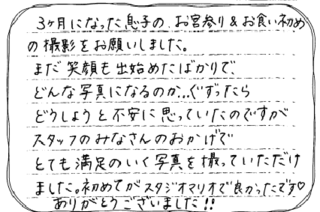 3ヶ月になった息子の お宮参り&お食い初め
の撮影をお願いしました。
まだ笑顔も出始めたばかりで、
どんな写真になるのか…ぐずったら
どうしようと不安に思っていたのですが
スタッフのみなさんのおかげで
とても満足のいく写真を撮っていただけ
ました。初めてがスタジオマリオで良かったです♡
ありがとうございました!!